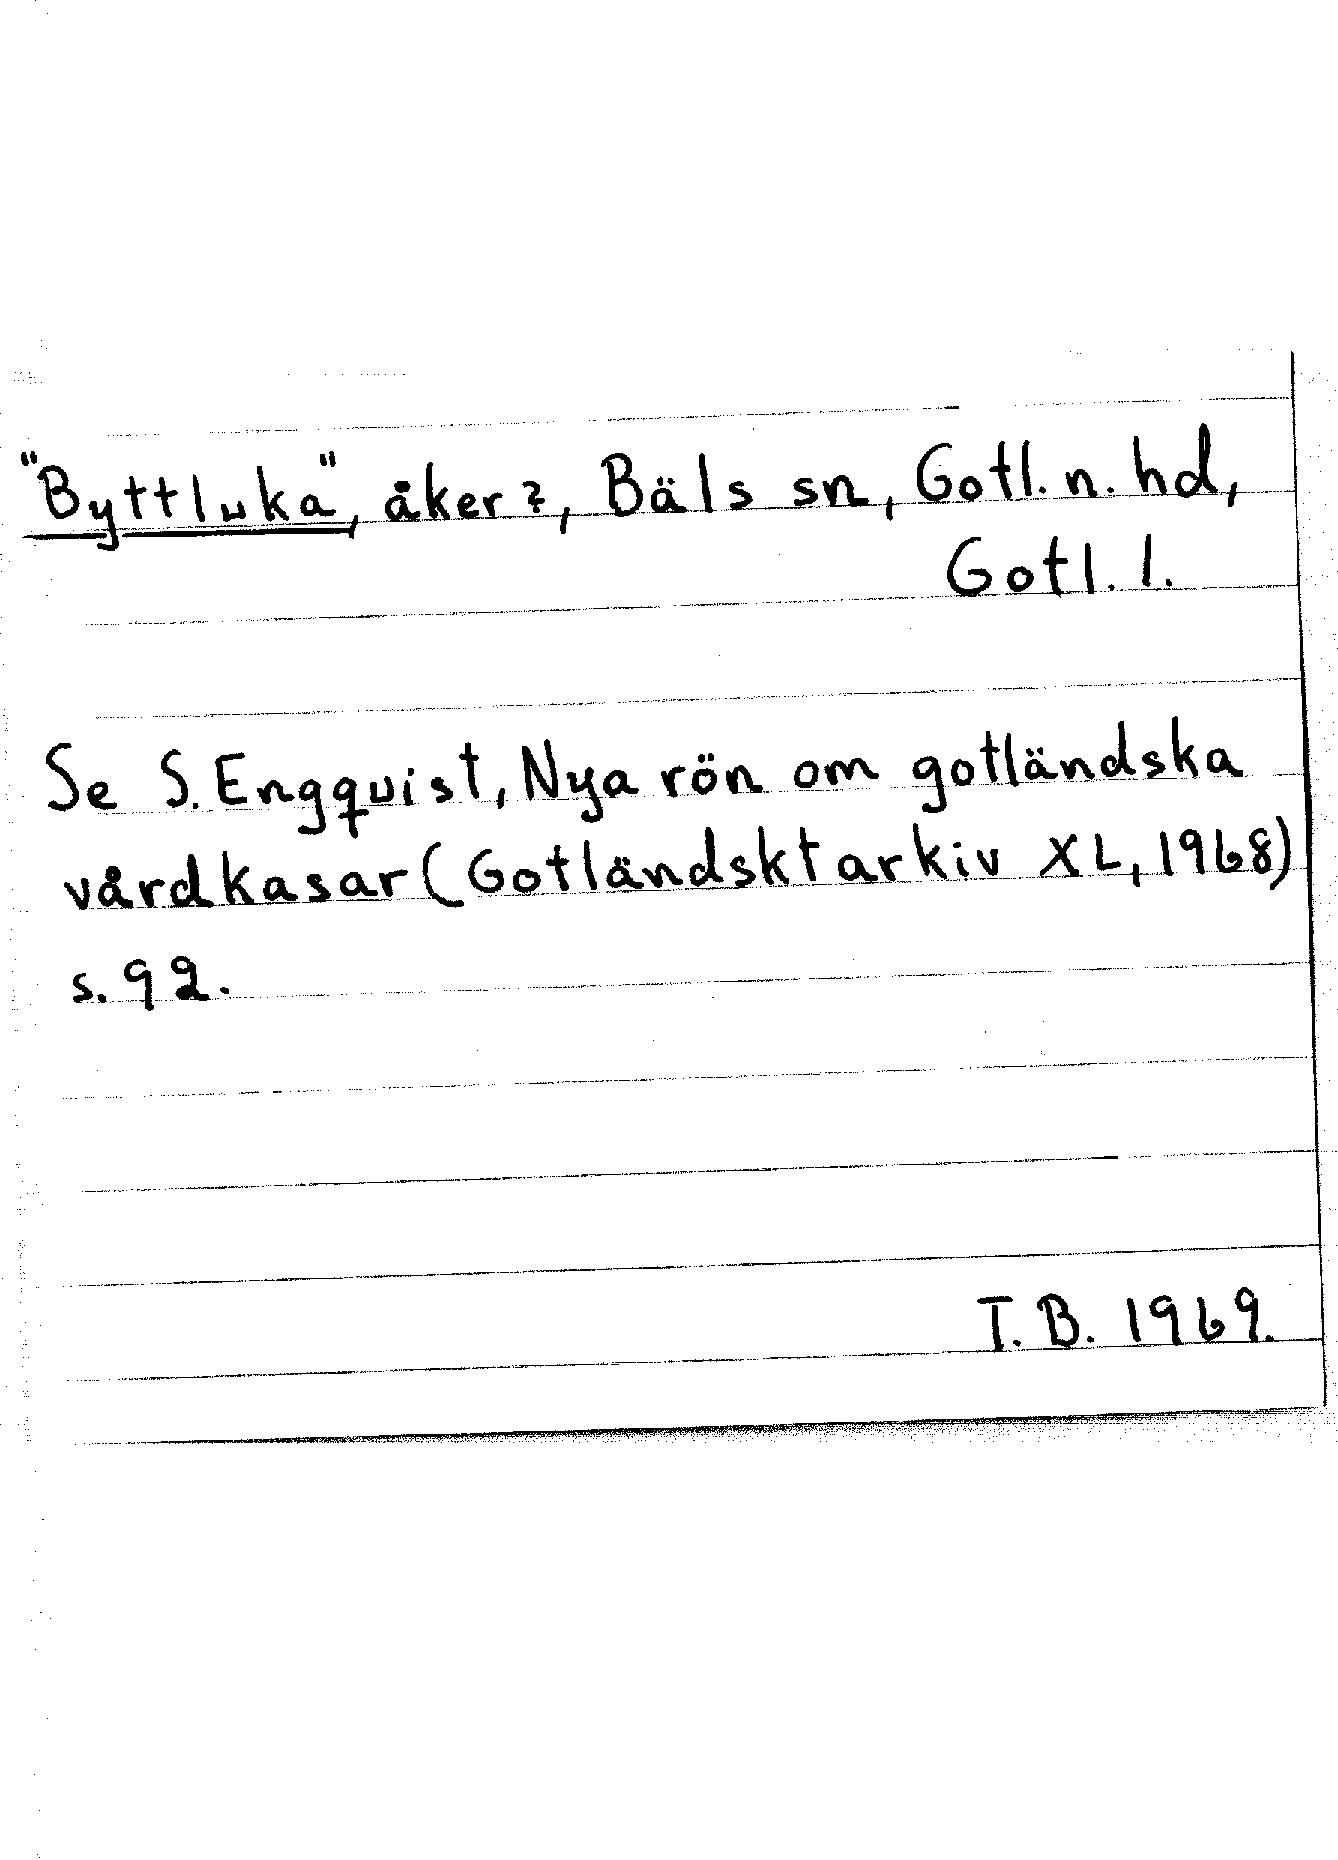 "Byttluka", åker?, Bäls sn, Gotl. n. hd,
Gotl. l.
Se S. Engquist, Nya rön om gotländska
vårdkasar (Gotländskt arkiv XL, 1968)
s. 92.
T. B. 1969.